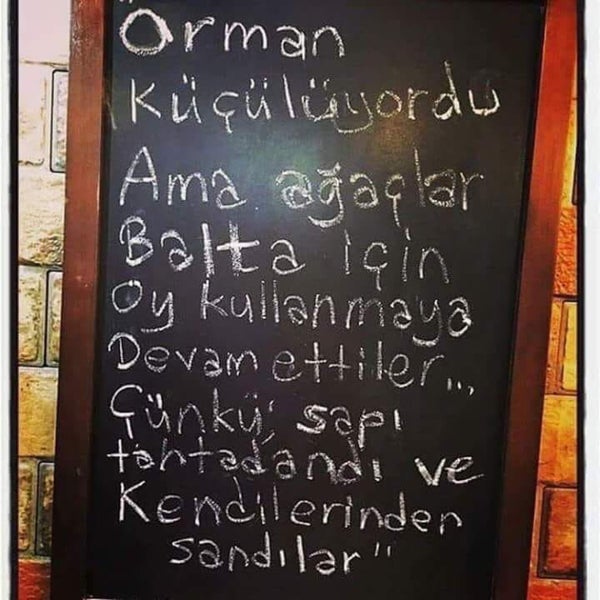 "Orman
Küçülüyordu
Ama ağaçlar
Balta için
oy kullanmaya
Devam ettiler...
Çünkü; sapı
tahtadandı ve
Kendilerinden
sandılar"